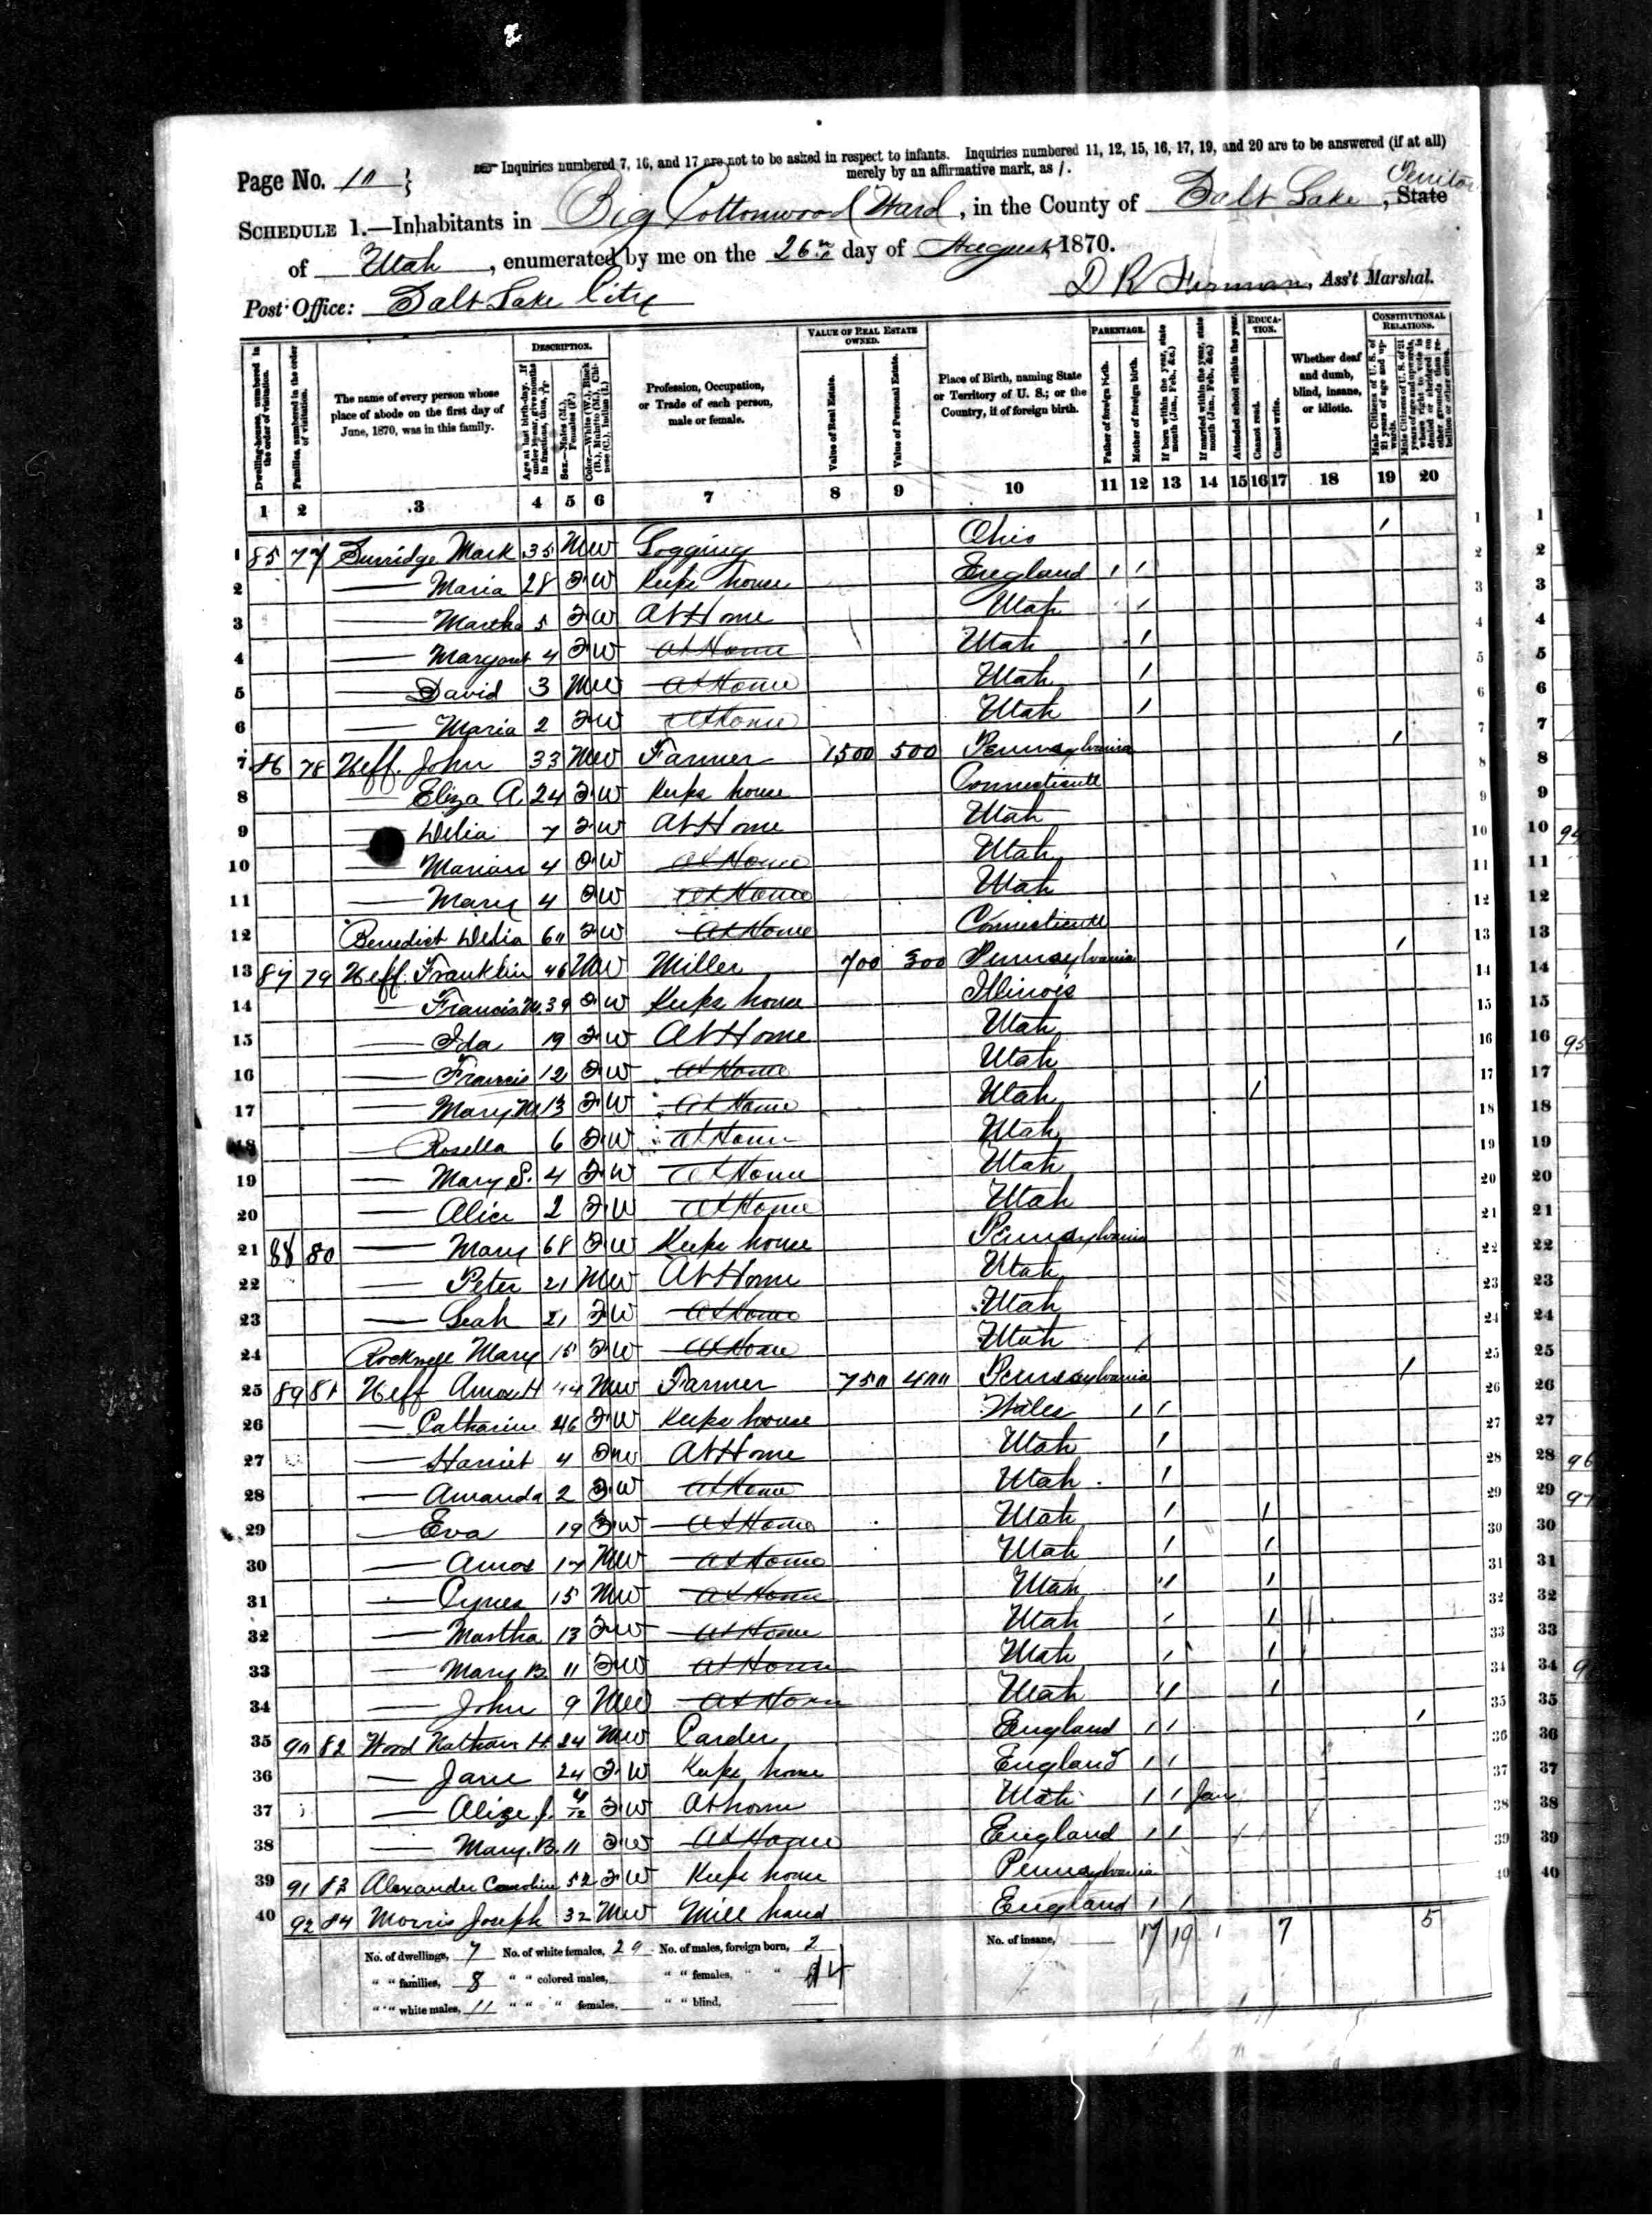 Page No. 10
Inquiries numbered 7, 16, and 17 are not to be asked in respect to infants. Inquiries numbered 11, 12, 15, 16, 17, 19, and 20 are to be answered (if at all)
merely by an affirmative mark, as /.
SCHEDULE 1.—Inhabitants in Big Cottonwood Ward, in the County of Salt Lake, State
of Utah, enumerated by me on the 26th day of August, 1870.
Post Office: Salt Lake City
D R Ass't Marshal.
Dwelling-houses, numbered in the order of visitation.
Families, numbered in the order of visitation.
The name of every person whose place of abode on the first day of June, 1870, was in this family.
DESCRIPTION.
Age at last birth-day. If under 1 year, give months in fractions, thus, 3/12
Sex.—Males (M.), Females (F.)
Color.—White (W.), Black (B.), Mulatto (M.), Chinese (C.), Indian (I.)
Profession, Occupation, or Trade of each person, male or female.
VALUE OF REAL ESTATE OWNED.
Value of Real Estate.
Value of Personal Estate.
Place of Birth, naming State or Territory of U. S.; or the Country, if of foreign birth.
PARENTAGE.
Father of foreign birth.
Mother of foreign birth.
If born within the year, state month (Jan., Feb., &c.)
If married within the year, state month (Jan., Feb., &c.)
EDUCATION.
Attended school within the year.
Cannot read.
Cannot write.
Whether deaf and dumb, blind, insane, or idiotic.
CONSTITUTIONAL RELATIONS.
Male Citizens of U. S. of 21 years of age and upwards.
1 2 3 4 5 6 7 8 9 10 11 12 13 14 15 16 17 18 19 20
1 85 77 Mark 35 M W Logging Ohio / 1
2 — Maria 28 F W Keeps house England / / 2
3 — Martha 5 F W At Home Utah / 3
4 — Margaret 4 F W At Home Utah / 4
5 — David 3 M W At Home Utah / 5
6 — Maria 2 F W At Home Utah / 6
7 86 78 Neff John 33 M W Farmer 1500 500 Pennsylvania / 7
8 — Eliza A 24 F W Keeps house Connecticutt 8
9 — Delia 7 F W At Home Utah 9
10 — Marian 4 F W At Home Utah 10
11 — Mary 4 F W At Home Utah 11
12 Benedict Delia 60 F W At Home Connecticutt 12
13 87 79 Neff Franklin 46 M W Miller 700 300 Pennsylvania / 13
14 — Francis M. 39 F W Keeps house Illinois 14
15 — Ida 19 F W At Home Utah 15
16 — Francis 12 F W At Home Utah 16
17 — Mary M 13 F W At Home Utah / 17
18 — Rosella 6 F W At Home Utah 18
19 — Mary S. 4 F W At Home Utah 19
20 — Alice 2 F W At Home Utah 20
21 88 80 — Mary 68 F W Keeps house Pennsylvania 21
22 — Peter 21 M W At Home Utah 22
23 — Leah 21 F W At Home Utah 23
24 Rockwell Mary 15 F W At Home Utah / 24
25 89 81 Neff Amos H 44 M W Farmer 750 400 Pennsylvania / 25
26 — Catharine 46 F W Keeps house Wales / / 26
27 — Harriet 4 F W At Home Utah / 27
28 — Amanda 2 F W At Home Utah / 28
29 — Eva 19 F W At Home Utah / / 29
30 — Amos 17 M W At Home Utah / / 30
31 — Cyrus 15 M W At Home Utah / / 31
32 — Martha 13 F W At Home Utah / / 32
33 — Mary B. 11 F W At Home Utah / / 33
34 — John 9 M W At Home Utah / / 34
35 90 82 Wood Nathan H. 24 M W Carder England / / / 35
36 — Jane 24 F W Keeps house England / / 36
37 — Alize J. F W At home Utah / / Jan 37
38 — Mary B. 11 F W At Home England / / / 38
39 91 83 Alexander Caroline 52 F W Keeps house Pennsylvania 39
40 92 84 Morris Joseph 32 M W Mill hand England / / 40
No. of dwellings, 7 No. of white females, 29 No. of males, foreign born, 2 No. of insane, 17 19 1 7 5
" " families, 8 " " colored males, " " females, " " 4
" " white males, 11 " " " females, " " blind,